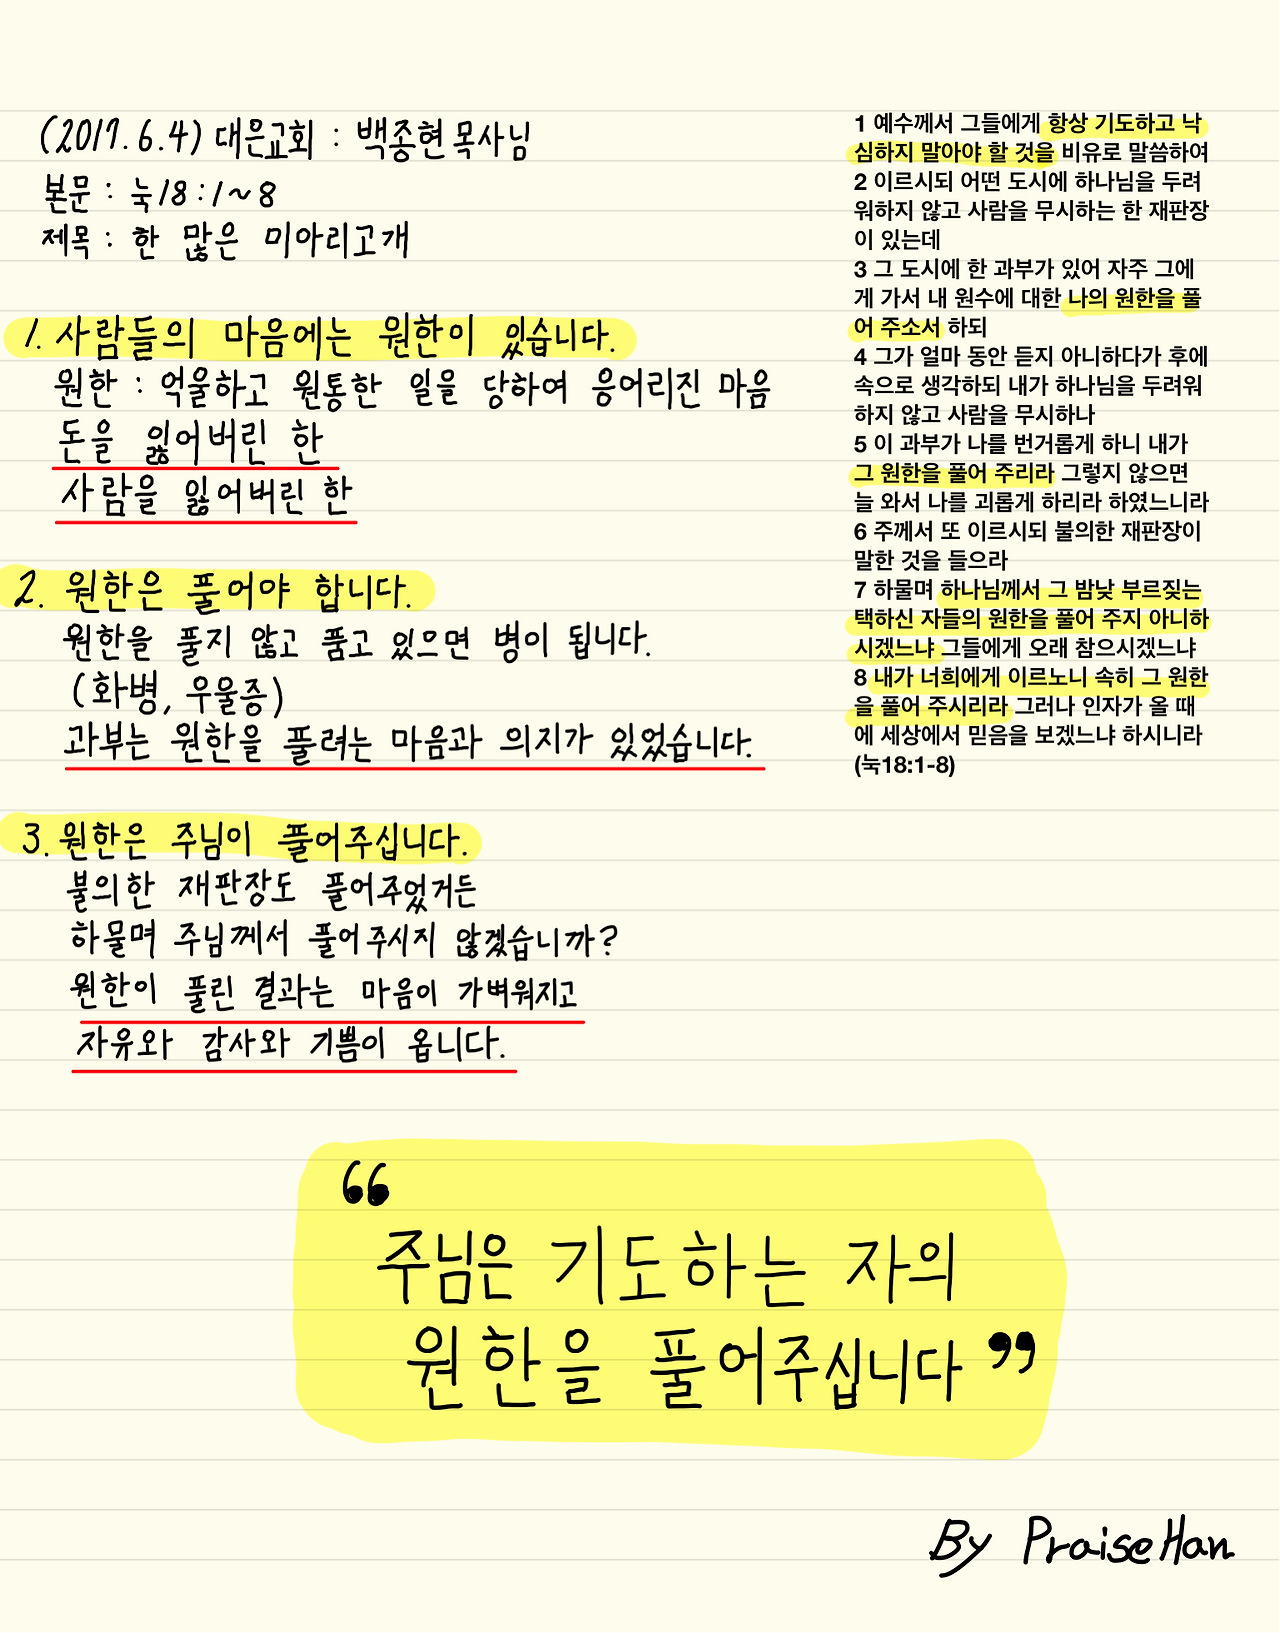 (2017.6.4) 대은교회 : 백종현목사님
본문 : 눅18:1~8
제목 : 한 많은 미아리고개
1. 사람들의 마음에는 원한이 있습니다.
원한 : 억울하고 원통한 일을 당하여 응어리진 마음
돈을 잃어버린 한
사람을 잃어버린 한
2. 원한은 풀어야 합니다.
원한을 풀지 않고 품고 있으면 병이 됩니다.
(화병, 우울증)
과부는 원한을 풀려는 마음과 의지가 있었습니다.
3. 원한은 주님이 풀어주십니다.
불의한 재판장도 풀어주었거든
하물며 주님께서 풀어주시지 않겠습니까?
원한이 풀린 결과는 마음이 가벼워지고
자유와 감사와 기쁨이 옵니다.
1 예수께서 그들에게 항상 기도하고 낙
심하지 말아야 할 것을 비유로 말씀하여
2 이르시되 어떤 도시에 하나님을 두려
워하지 않고 사람을 무시하는 한 재판장
이 있는데
3 그 도시에 한 과부가 있어 자주 그에
게 가서 내 원수에 대한 나의 원한을 풀
어 주소서 하되
4 그가 얼마 동안 듣지 아니하다가 후에
속으로 생각하되 내가 하나님을 두려워
하지 않고 사람을 무시하나
5 이 과부가 나를 번거롭게 하니 내가
그 원한을 풀어 주리라 그렇지 않으면
늘 와서 나를 괴롭게 하리라 하였느니라
6 주께서 또 이르시되 불의한 재판장이
말한 것을 들으라
7 하물며 하나님께서 그 밤낮 부르짖는
택하신 자들의 원한을 풀어 주지 아니하
시겠느냐 그들에게 오래 참으시겠느냐
8 내가 너희에게 이르노니 속히 그 원한
을 풀어 주시리라 그러나 인자가 올 때
에 세상에서 믿음을 보겠느냐 하시니라
(눅18:1-8)
“주님은 기도하는 자의
원한을 풀어주십니다”
By PraiseHan